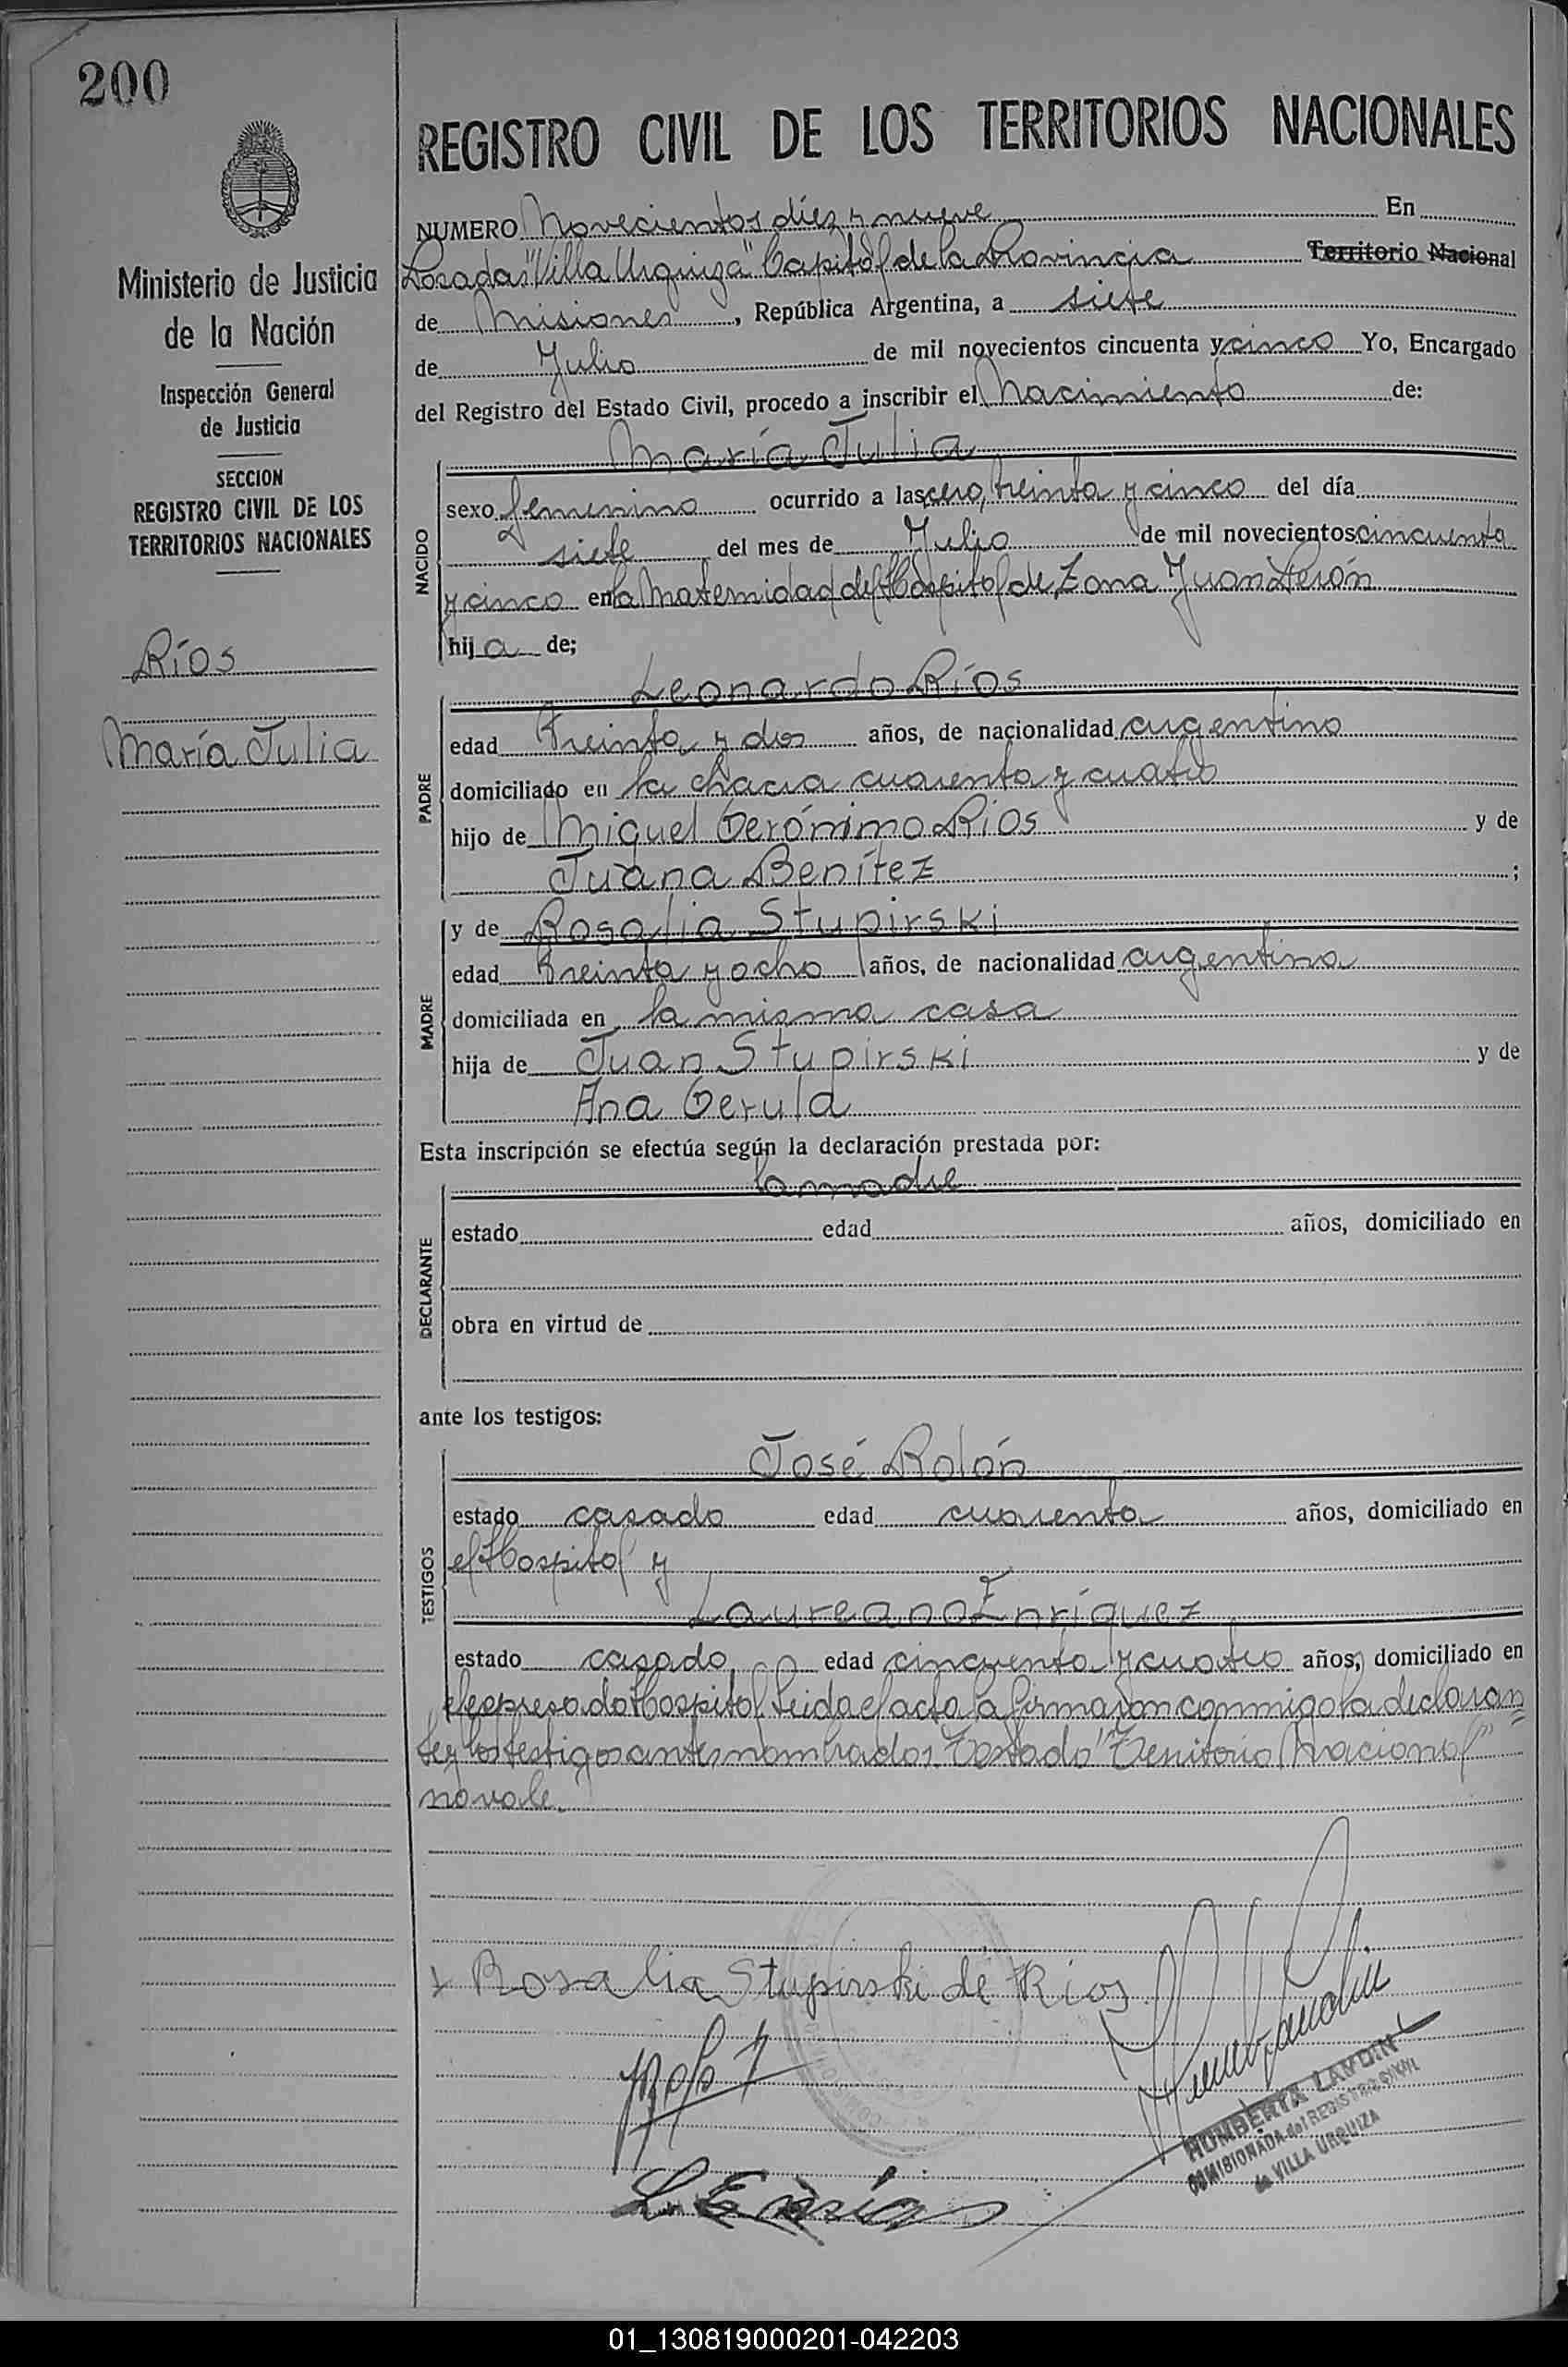 200
REGISTRO CIVIL DE LOS TERRITORIOS NACIONALES
Ministerio de Justicia
de la Nación
Inspección General
de Justicia
SECCION
REGISTRO CIVIL DE LOS
TERRITORIOS NACIONALES
Ríos
María Julia
NUMERO Novecientos diez y nueve En
Posadas "Villa Urquiza" Capital de la Provincia Territorio Nacional
de Misiones, República Argentina, a siete
de Julio de mil novecientos cincuenta y cinco Yo, Encargado
del Registro del Estado Civil, procedo a inscribir el Nacimiento de:
NACIDO
María Julia
sexo femenino ocurrido a las cero, treinta y cinco del día
siete del mes de Julio de mil novecientos cincuenta
y cinco en la Maternidad del Hospital de Zona Juan Perón
hija de;
PADRE
Leonardo Ríos
edad treinta y dos años, de nacionalidad argentino
domiciliado en la chacra cuarenta y cuatro
hijo de Miguel Gerónimo Ríos y de
Juana Benítez ;
MADRE
y de Rosalia Stupirski
edad treinta y ocho años, de nacionalidad argentina
domiciliada en la misma casa
hija de Juan Stupirski y de
Ana Gerula
Esta inscripción se efectúa según la declaración prestada por:
DECLARANTE
la madre
estado edad años, domiciliado en
obra en virtud de
ante los testigos:
TESTIGOS
José Rolón
estado casado edad cuarenta años, domiciliado en
el Hospital y
Laureano Enríquez
estado casado, edad cincuenta y cuatro años, domiciliado en
el expresado Hospital. Leida el acta la firmaron conmigo la declaran=
te y los testigos antes nombrados. Testado "Territorio Nacional"
no vale.
x Rosalia Stupirski de Rios
HUMBERTA LAVDIN
COMISIONADA del REGISTRO CIVIL
de VILLA URQUIZA
01_130819000201-042203